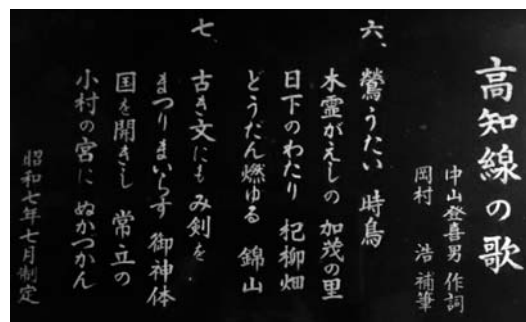 高知線の歌
中山登喜男 作詞
岡村 浩 補筆
六、鶯うたい 時鳥
木霊がえしの 加茂の里
日下のわたり 杞柳畑
どうだん燃ゆる 錦山
七、古き文にも み剣を
まつりまいらす 御神体
国を開きし 常立の
小村の宮に ぬかつかん
昭和七年七月制定